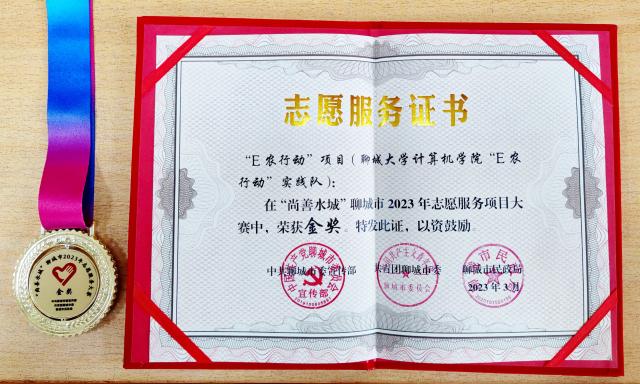 志愿服务证书
“E农行动”项目(聊城大学计算机学院“E农
行动”实践队):
在“尚善水城”聊城市2023年志愿服务项目大
赛中,荣获金奖。特发此证,以资鼓励。
中共聊城市委宣传部 共青团聊城市委 聊城市民政局
2023年3月
中国共产党聊城市委员会
宣传部
聊城市委员会
“尚善水城”聊城市2023年志愿服务项目大赛
金奖